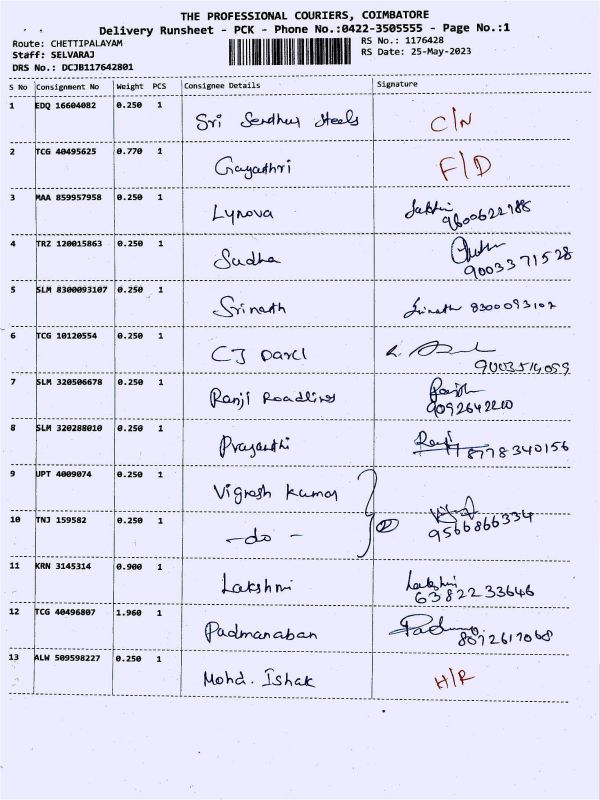 THE PROFESSIONAL COURIERS, COIMBATORE
Delivery Runsheet - PCK - Phone No.:0422-3505555 - Page No.:1
Route: CHETTIPALAYAM RS No.: 1176428
Staff: SELVARAJ RS Date: 25-May-2023
DRS No.: DCJB117642801
S No Consignment No Weight PCS Consignee Details Signature
1 EDQ 16604082 0.250 1 Sri Senthur Steels C/N
2 TCG 40495625 0.770 1 Gayathri F/D
3 MAA 859957958 0.250 1 Lynova
9800622188
4 TRZ 120015863 0.250 1 Sudha
9003371528
5 SLM 8300093107 0.250 1 Srinath Srinath 8300093107
6 TCG 10120554 0.250 1 CJ Darcl
9003514059
7 SLM 320506678 0.250 1 Ranji Roadlines
9092642210
8 SLM 320288010 0.250 1 Prasanthi
8778340156
9 UPT 4009074 0.250 1 Vignesh Kumar
10 TNJ 159582 0.250 1 -do- 2
9566866334
11 KRN 3145314 0.900 1 Lakshmi Lakshmi
6382233646
12 TCG 40496807 1.960 1 Padmanaban
8072617068
13 ALW 509598227 0.250 1 Mohd. Ishak H/R